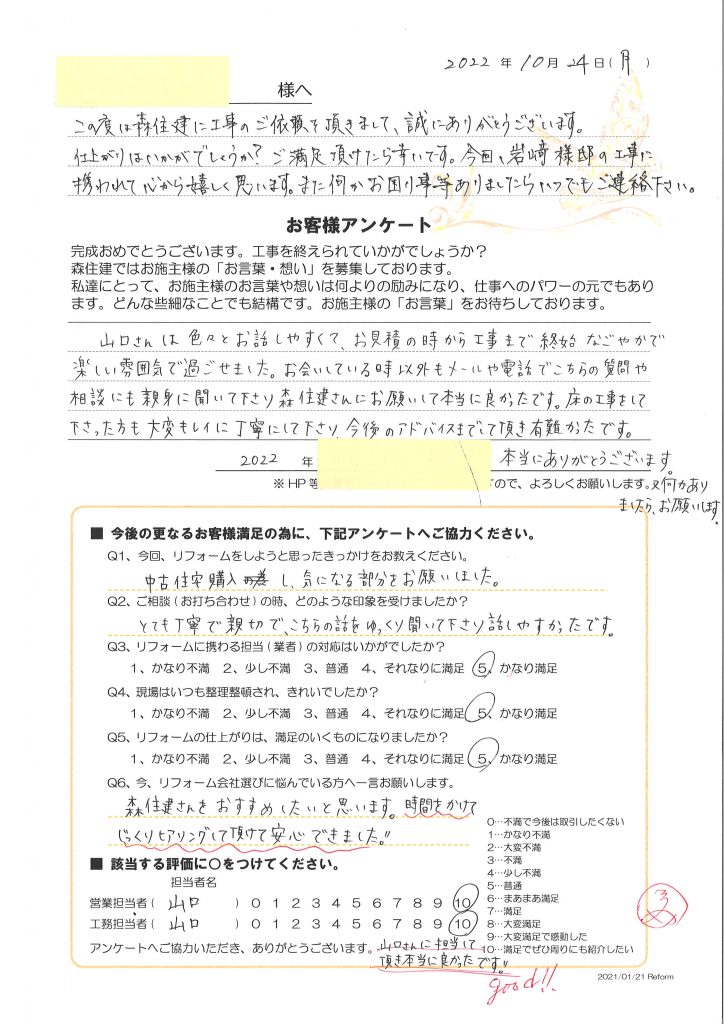 2022 年 10月 24日(月)
様へ
この度は森住建に工事のご依頼を頂きまして、誠にありがとうございます。
仕上がりはいかがでしょうか? ご満足頂けたら幸いです。今回、岩﨑様邸の工事に
携われて心から嬉しく思います。また何かお困り事等ありましたらいつでもご連絡下さい。
お客様アンケート
完成おめでとうございます。工事を終えられていかがでしょうか?
森住建ではお施主様の「お言葉・想い」を募集しております。
私達にとって、お施主様のお言葉や想いは何よりの励みになり、仕事へのパワーの元でもあり
ます。どんな些細なことでも結構です。お施主様の「お言葉」をお待ちしております。
山口さんは色々とお話しやすくて、お見積の時から工事まで終始なごやかで
楽しい雰囲気で過ごせました。お会いしている時以外もメールや電話でこちらの質問や
相談にも親身に聞いて下さり森住建さんにお願いして本当に良かったです。床の工事をして
下さった方も大変キレイに丁寧にして下さり、今後のアドバイスまでして頂き有難かったです。
2022 年 本当にありがとうございます。
※HP等 ので、よろしくお願いします。又何かあり
ましたら、お願いします。
■ 今後の更なるお客様満足の為に、下記アンケートへご協力ください。
Q1、今回、リフォームをしようと思ったきっかけをお教えください。
中古住宅購入 し、気になる部分をお願いしました。
Q2、ご相談(お打ち合わせ)の時、どのような印象を受けましたか?
とても丁寧で親切で、こちらの話をゆっくり聞いて下さり話しやすかったです。
Q3、リフォームに携わる担当(業者)の対応はいかがでしたか?
1、かなり不満 2、少し不満 3、普通 4、それなりに満足 5、かなり満足
Q4、現場はいつも整理整頓され、きれいでしたか?
1、かなり不満 2、少し不満 3、普通 4、それなりに満足 5、かなり満足
Q5、リフォームの仕上がりは、満足のいくものになりましたか?
1、かなり不満 2、少し不満 3、普通 4、それなりに満足 5、かなり満足
Q6、今、リフォーム会社選びに悩んでいる方へ一言お願いします。
森住建さんをおすすめしたいと思います。時間をかけて
じっくりヒアリングして頂けて安心できました。!!
■ 該当する評価に○をつけてください。
担当者名
営業担当者( 山口 ) 0 1 2 3 4 5 6 7 8 9 10
工務担当者( 山口 ) 0 1 2 3 4 5 6 7 8 9 10
アンケートへご協力いただき、ありがとうございます。
山口さんに担当して
頂き本当に良かったです。!!
good!!
0…不満で今後は取引したくない
1…かなり不満
2…大変不満
3…不満
4…少し不満
5…普通
6…まあまあ満足
7…満足
8…大変満足
9…大変満足で感動した
10…満足でぜひ周りにも紹介したい
2021/01/21 Reform